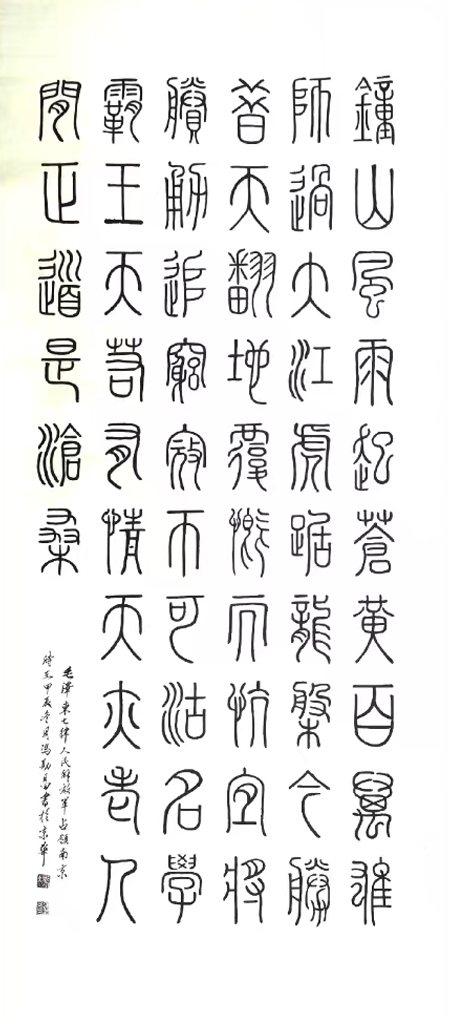 鐘山風雨起蒼黃百萬雄
師過大江虎踞龍槃今勝
昔天翻地覆慨而忼宜將
賸勇追窮寇不可沽名學
霸王天若有情天亦老人
閒正道是滄桑
毛澤東七律人民解放軍占領南京
甲辰冬月馮勤書於京華